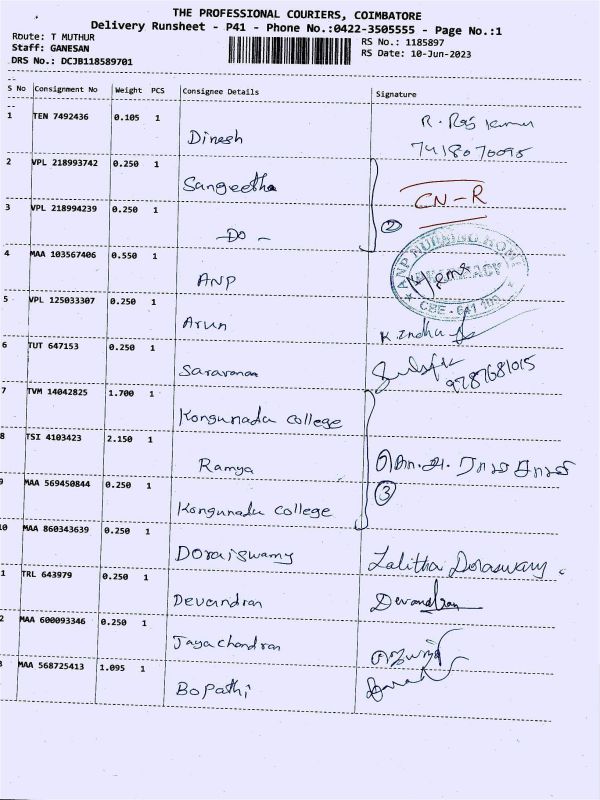 THE PROFESSIONAL COURIERS, COIMBATORE
Delivery Runsheet - P41 - Phone No.:0422-3505555 - Page No.:1
Route: T MUTHUR
RS No.: 1185897
Staff: GANESAN
RS Date: 10-Jun-2023
DRS No.: DCJB118589701
S No Consignment No Weight PCS Consignee Details Signature
1 TEN 7492436 0.105 1 Dinesh R. Raj Kumar
7418070095
2 VPL 218993742 0.250 1 Sangeetha CN-R
3 VPL 218994239 0.250 1 -DO- 2
4 MAA 103567406 0.550 1 ANP ANP NURSING HOME PHARMACY CBE - 641 100
5 VPL 125033307 0.250 1 Arun K. Indhu
6 TUT 647153 0.250 1 Saravanan
9787681015
7 TVM 14042825 1.700 1 Kongunadu college
8 TSI 4103423 2.150 1 Ramya
9 MAA 569450844 0.250 1 Kongunadu college 3
10 MAA 860343639 0.250 1 Doraiswamy Lalitha Doraswamy.
1 TRL 643979 0.250 1 Devendran Devandran
2 MAA 600093346 0.250 1 Jayachandran
3 MAA 568725413 1.095 1 Bopathi